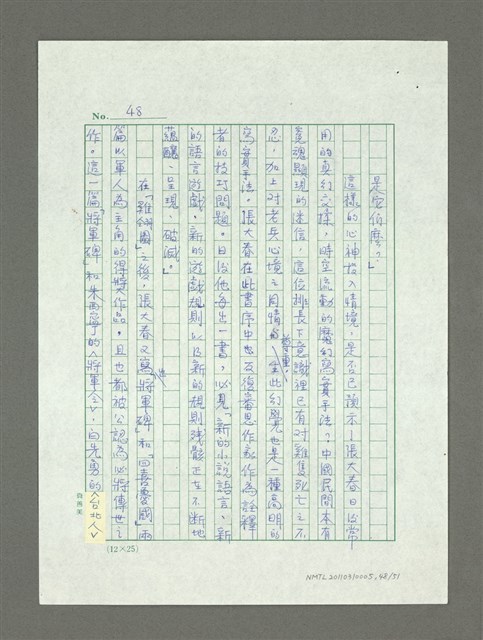 No. 48
是安佰麼？」
這樣的心神投入情境，是否已預示了張大春日後常
用的真幻交揉，時空流動的魔幻寫實手法？中國民間本有
冤魂顯現的迷信，這位排長下意識裡已有對雞隻死亡之不
忍，加上對老兵心境之同情，尊重，至此幻覺也是一種高明的
寫實手法。張大春在此書序中也反復審思作家作為詮釋
者的技巧問題。日後他每出一書，必見「新的小說語言、新
的語言遊戲，新的遊戲規則以及新的規則殘骸正在不斷地
蘊釀、呈現、破滅。」
在「雞翎圖」之後，張大春又寫出「將軍碑」和「四喜憂國」兩
篇以軍人為主角的得獎作品。且也都被公認為必將傳世之
作。這一篇「將軍碑」和朱西甯的〈將軍令〉，白先勇的〈台北人〉
(12×25)
NMTL20110310005, 48/51